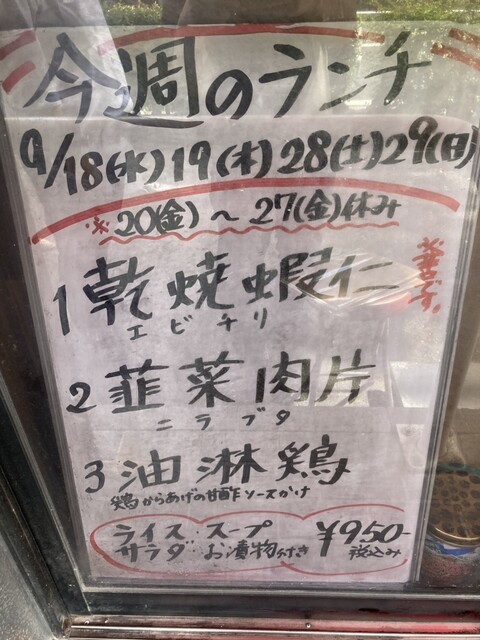 今週のランチ
9/18(水)19(木)28(土)29(日)
※20(金)～27(金)休み
1 乾焼蝦仁
エビチリ
2 韮菜肉片
ニラブタ
3 油淋鶏
鶏からあげの甘酢ソースかけ
ライス スープ
サラダ お漬物付き
¥950-
税込み